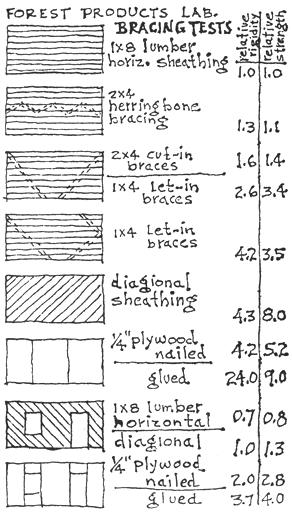 FOREST PRODUCTS LAB.
BRACING TESTS.
relative rigidity
relative strength
1x8 lumber
horiz. sheathing 1.0 1.0
2x4
herringbone
bracing 1.3 1.1
2x4 cut-in
braces 1.6 1.4
1x4 Let-in
braces 2.6 3.4
1x4 Let-in
braces 4.2 3.5
diagional
sheathing 4.3 8.0
1/4" plywood
nailed 4.2 5.2
glued 24.0 9.0
1x8 lumber
horizontal 0.7 0.8
diagional 1.0 1.3
1/4" plywood
nailed 2.0 2.8
glued 3.7 4.0